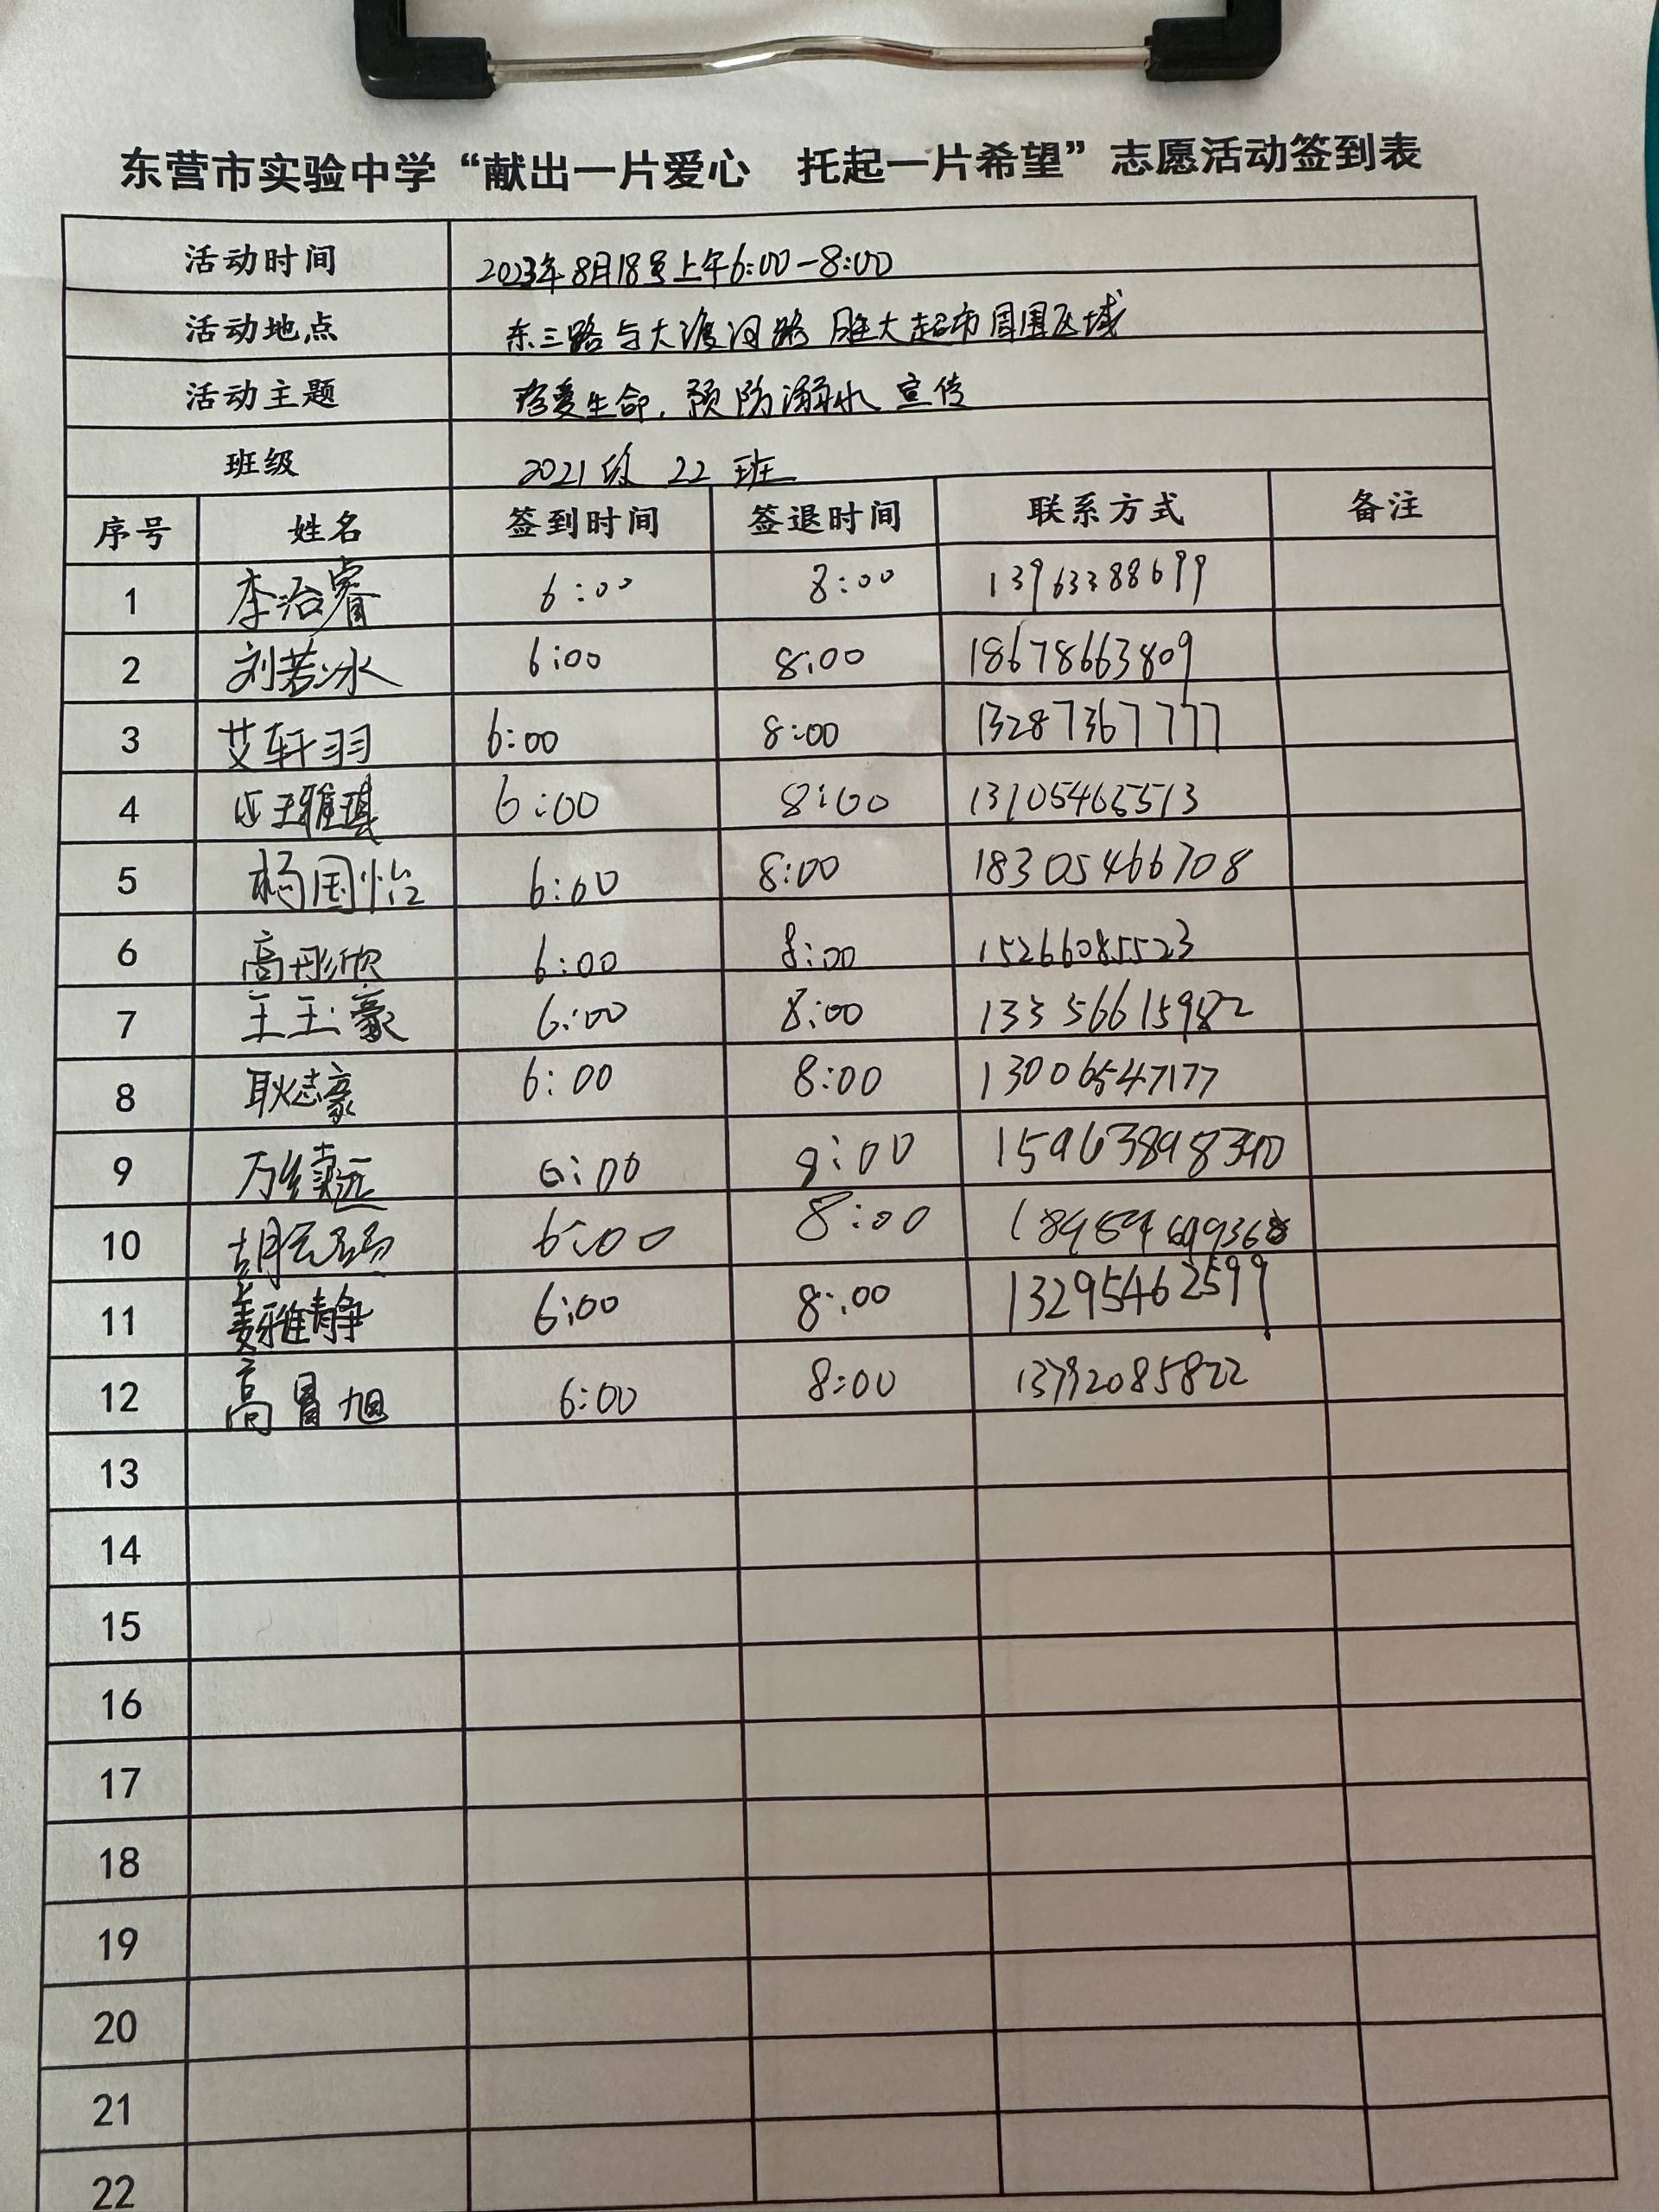 东营市实验中学“献出一片爱心 托起一片希望”志愿活动签到表
活动时间 2023年8月18号上午6:00-8:00
活动地点 东三路与大渡河路 胜大超市周围区域
活动主题 珍爱生命，预防溺水 宣传
班级 2021级 22 班
序号 姓名 签到时间 签退时间 联系方式 备注
1 李治睿 6:00 8:00 13963388699
2 刘若冰 6:00 8:00 18678663809
3 艾轩羽 6:00 8:00 13287367777
4 雅琪 6:00 8:00 13105465513
5 杨国怡 6:00 8:00 18305466708
6 高彤欣 6:00 8:00 15266085523
7 王玉豪 6:00 8:00 13356615982
8 耿志豪 6:00 8:00 13006547177
9 万续远 6:00 8:00 15963898340
10 胡元 6:00 8:00
11 姜雅静 6:00 8:00 13295462599
12 高冒旭 6:00 8:00 13792085822
13
14
15
16
17
18
19
20
21
22